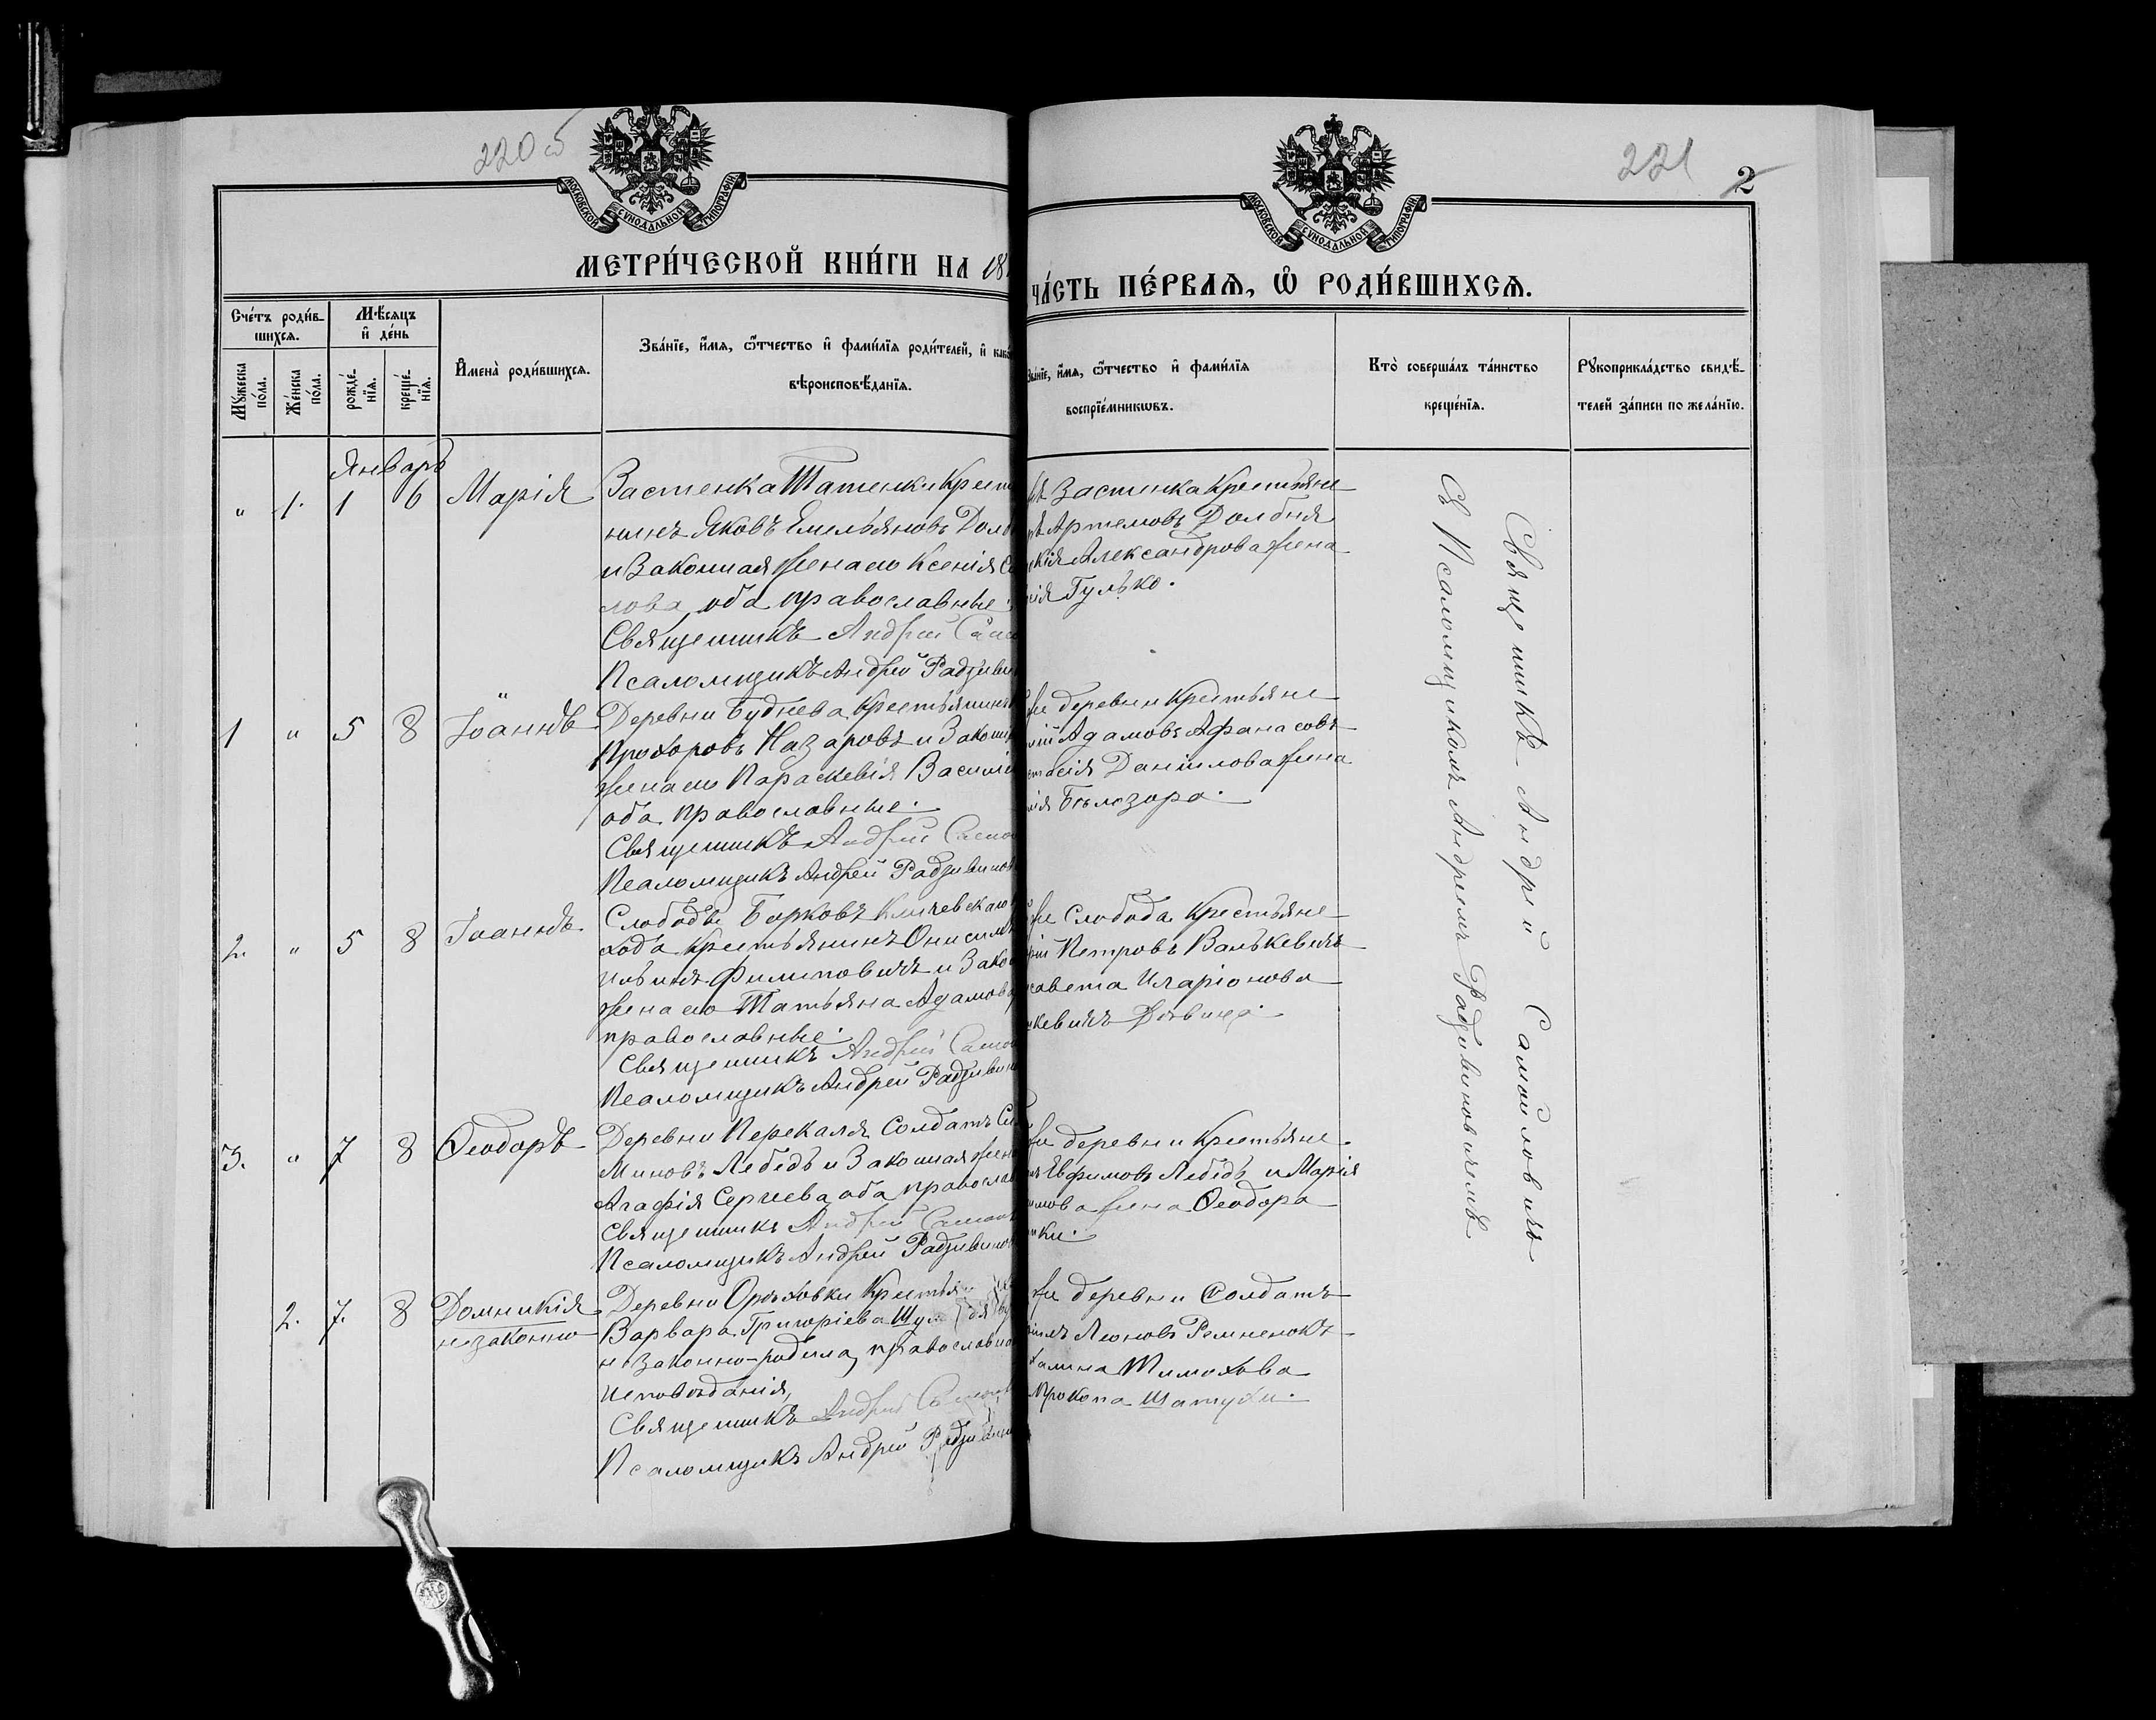 220 об
МОСКОВСКОЙ СѴНОДАЛЬНОЙ ТИПОГРАФІИ
МЕТРИ́ЧЕСКОЙ КНИ́ГИ НА 18
Сче́тъ роди́в-
шихся.
Мѣ́сяцъ
и҆ де́нь
Му́жеска по́ла.
Же́нска по́ла.
рожде́-
нїя.
креще́-
нїя.
И҆мена̀ роди́вшихся.
Зва́нїе, и҆́мя, ѻ҆́тчество и҆ фами́лїя роди́телей, и҆ како
вѣроисповѣ́данїя.
Январь
" 1. 1 6 Марія
Застенка Татенки Крест
нинъ Яковъ Емельяновъ Долб
и Законная жена его Ксенія
оба православные
Священникъ Андрей
Псаломщикъ Андрей Радзиви
1 " 5 8 Іоаннъ
Деревни Буднева Крестьянинъ
Прохоровъ Назаровъ и Законн
жена его Параскевія Васили
оба православные.
Священникъ Андрей Само
Псаломщикъ Андрей Радзивинов
2. " 5 8 Іоаннъ
Слободы Борковъ Кличевскаго
хода Крестьянинъ Онисимъ
Филиповичъ и Зако
жена его Татьяна Адамова
православные
Священникъ Андрей Само
Псаломщикъ Андрей Радзивин
3. " 7 8 Ѳеодоръ
Деревни Перекаля Солдатъ
Миновъ Лебедь и Законная жен
Агафія Сергиева оба православ
Священникъ Андрей Само
Псаломщикъ Андрей Радзивино
2. 7. 8 Домникія
незаконно
Деревни Орѣховки Крестья
Варвара Григоріева
незаконно-родила, православна
исповѣданія,
Священникъ Андрей
Псаломщикъ Андрей Радзиви
221
2
МОСКОВСКОЙ СѴНОДАЛЬНОЙ ТИПОГРАФІИ
ЧА́СТЬ ПЕ́РВАЯ, Ѡ҆ РОДИ́ВШИХСЯ.
Зва́нїе, и҆́мя, ѻ҆́тчество и҆ фами́лїя
воспрїе́мникѡвъ.
Кто̀ соверша́лъ та́инство
креще́нїя.
Рꙋкоприкла́дство свидѣ́-
телей за́писи по жела́нїю.
Застенка Крестьяне
Артемовъ Долбня
Александрова жена
Гулько.
же деревни Крестьяне
Адамовъ Афанасовъ
Данилова жена
Бѣлозора.
же Слобода Крестьяне
Петровъ Валькевичъ
савета Иларіонова
кевичъ Дѣвица.
же деревни Крестьяне
Евфимовъ Лебедь и Марія
мова жена Ѳеодора
ки.
же деревни Солдатъ
Леоновъ Ремненокъ
Тимохова
Прокопа Шатухи.
Священникъ Андрей Самойловичъ
Съ Псаломщикомъ Андреемъ Радзивиновичемъ